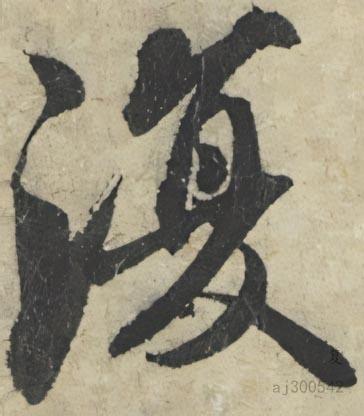 復
aj300542